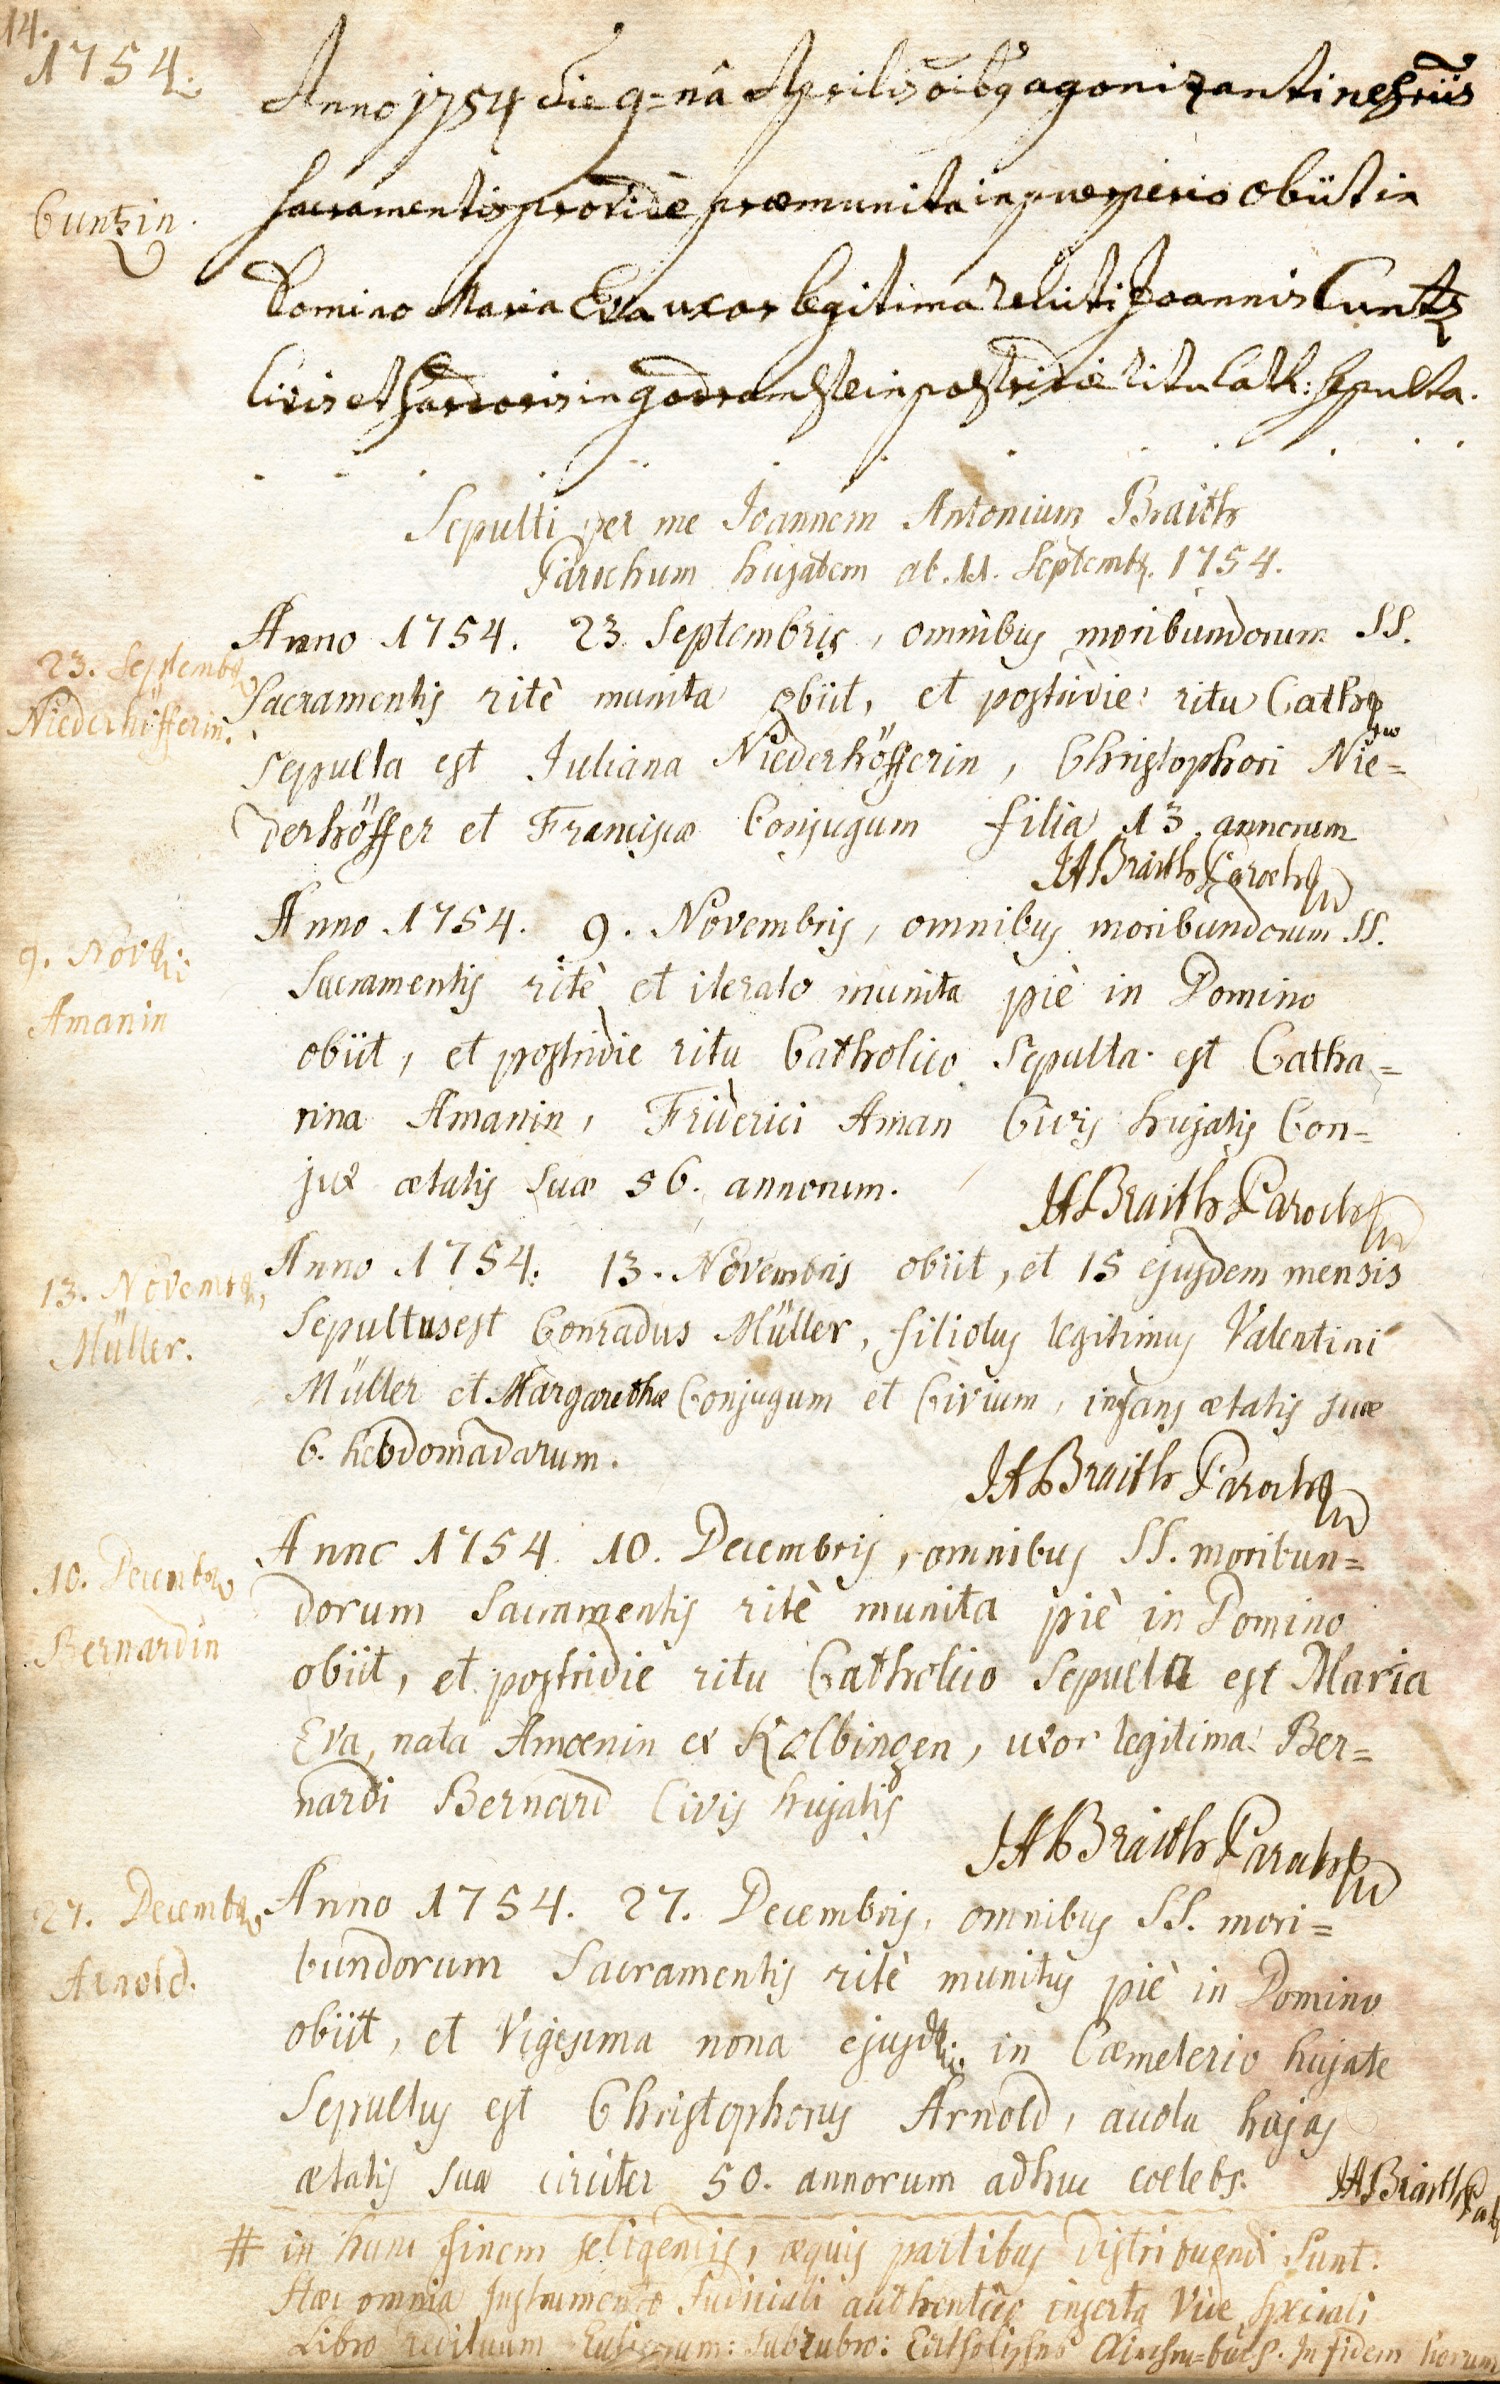 14.
1754.
Anno 1754 die 9=nâ Aprilis oibq agonizantium
Cuntzin.
Sacramentis providè præmunita in puerperio obiit in
Domino Maria Eva uxor legitima relicti Joannis Cuntz
Civis et in godramstein postridie ritu Cath: sepulta.
Sepulti per me Joannem Antonium Braith
Parochum hujatem ab. 11. Septembr. 1754.
Anno 1754. 23. Septembris, omnibus moribundorum SS.
23. Septembr
Niederhöfferin.
Sacramentis ritè munita obiit, et postridie ritu Catho
sepulta est Juliana Niederhöfferin, Christophori Nie=
derhöffer et Franciscæ Conjugum filia 13. annorum
JABraith Paroch
Anno 1754. 9. Novembris, omnibus moribundorum SS.
9. Novbris
Amanin
Sacramentis ritè et iterato munita piè in Domino
obiit, et postridie ritu Catholico sepulta est Catha=
rina Amanin, Friderici Aman Civis hujatis Con=
jux ætatis suæ 56. annorum.
JABraith Paroch
Anno 1754. 13. Novembris obiit, et 15 ejusdem mensis
13. Novembr,
Müller.
Sepultus est Conradus Müller, filiolus legitimus Valentini
Müller et Margarethæ Conjugum et Civium, infans ætatis suæ
6. hebdomadarum.
JABraith Paroch
Anno 1754. 10. Decembris, omnibus SS. moribun=
10. Decembr
Bernardin
dorum Sacramentis ritè munita piè in Domino
obiit, et postridie ritu Catholico sepulta est Maria
Eva, nata Amoenin ex Kolbingen, uxor legitima Ber=
nardi Bernard Civis hujatis
JABraith Paroch
Anno 1754. 27. Decembris, omnibus SS. mori=
27. Decembr
Arnold.
bundorum Sacramentis ritè munitus piè in Domino
obiit, et Vigesima nona ejusd in Cæmeterio hujate
Sepultus est Christophorus Arnold, acola hujas
ætatis suæ circiter 50. annorum adhuc coelebs.
JABraith Pa
# in hunc finem seligendis, æquis partibus distribuendi sunt.
Hæc omnia Instrumento Judiciali authentico inserta Vide speciali
Libro redituum sub rubro: In fidem horum